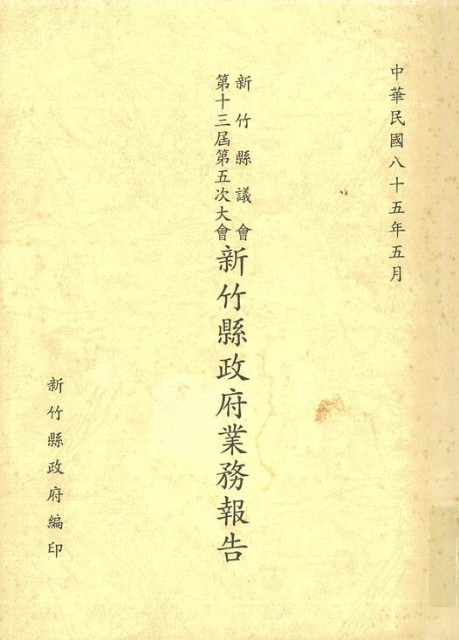 中華民國八十五年五月
新竹縣議會
第十三屆第五次大會
新竹縣政府業務報告
新竹縣政府編印